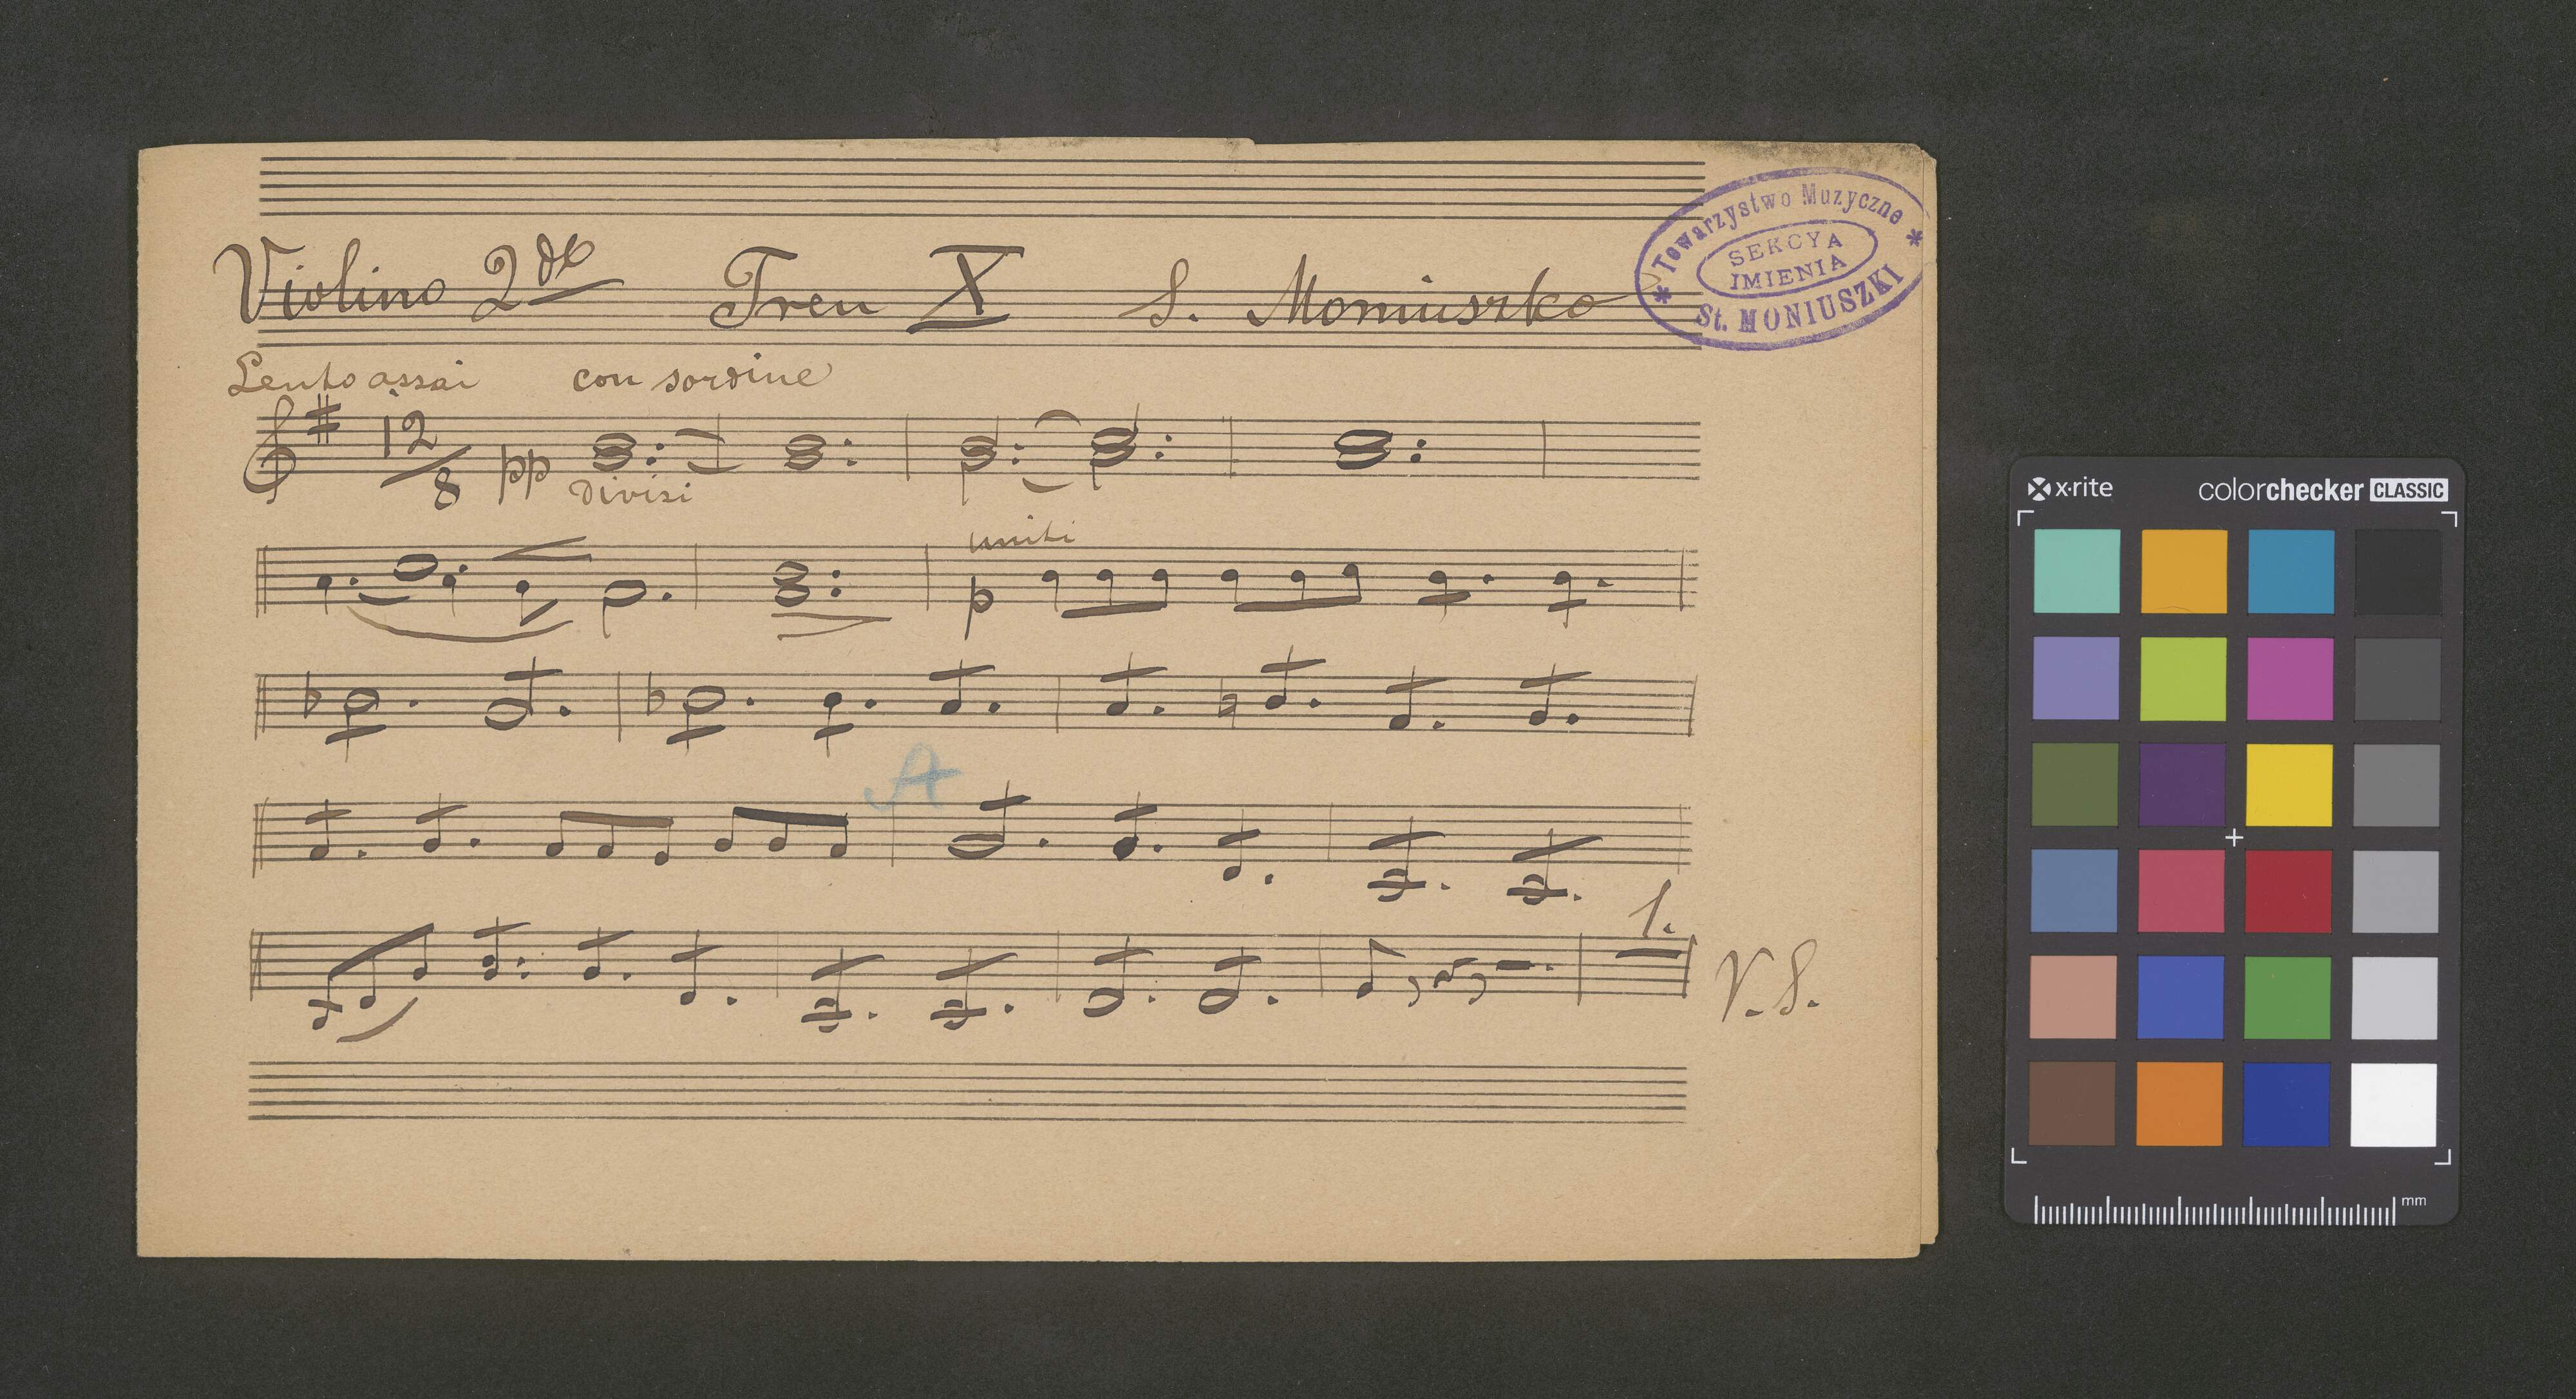 Violino 2do Tren X S. Moniuszko
* Towarzystwo Muzyczne *
SEKCYA
IMIENIA
St. MONIUSZKI
Lento assai con sordine
12
8 pp
Divisi
uniti
A
1.
V.S.
x·rite colorchecker CLASSIC
mm